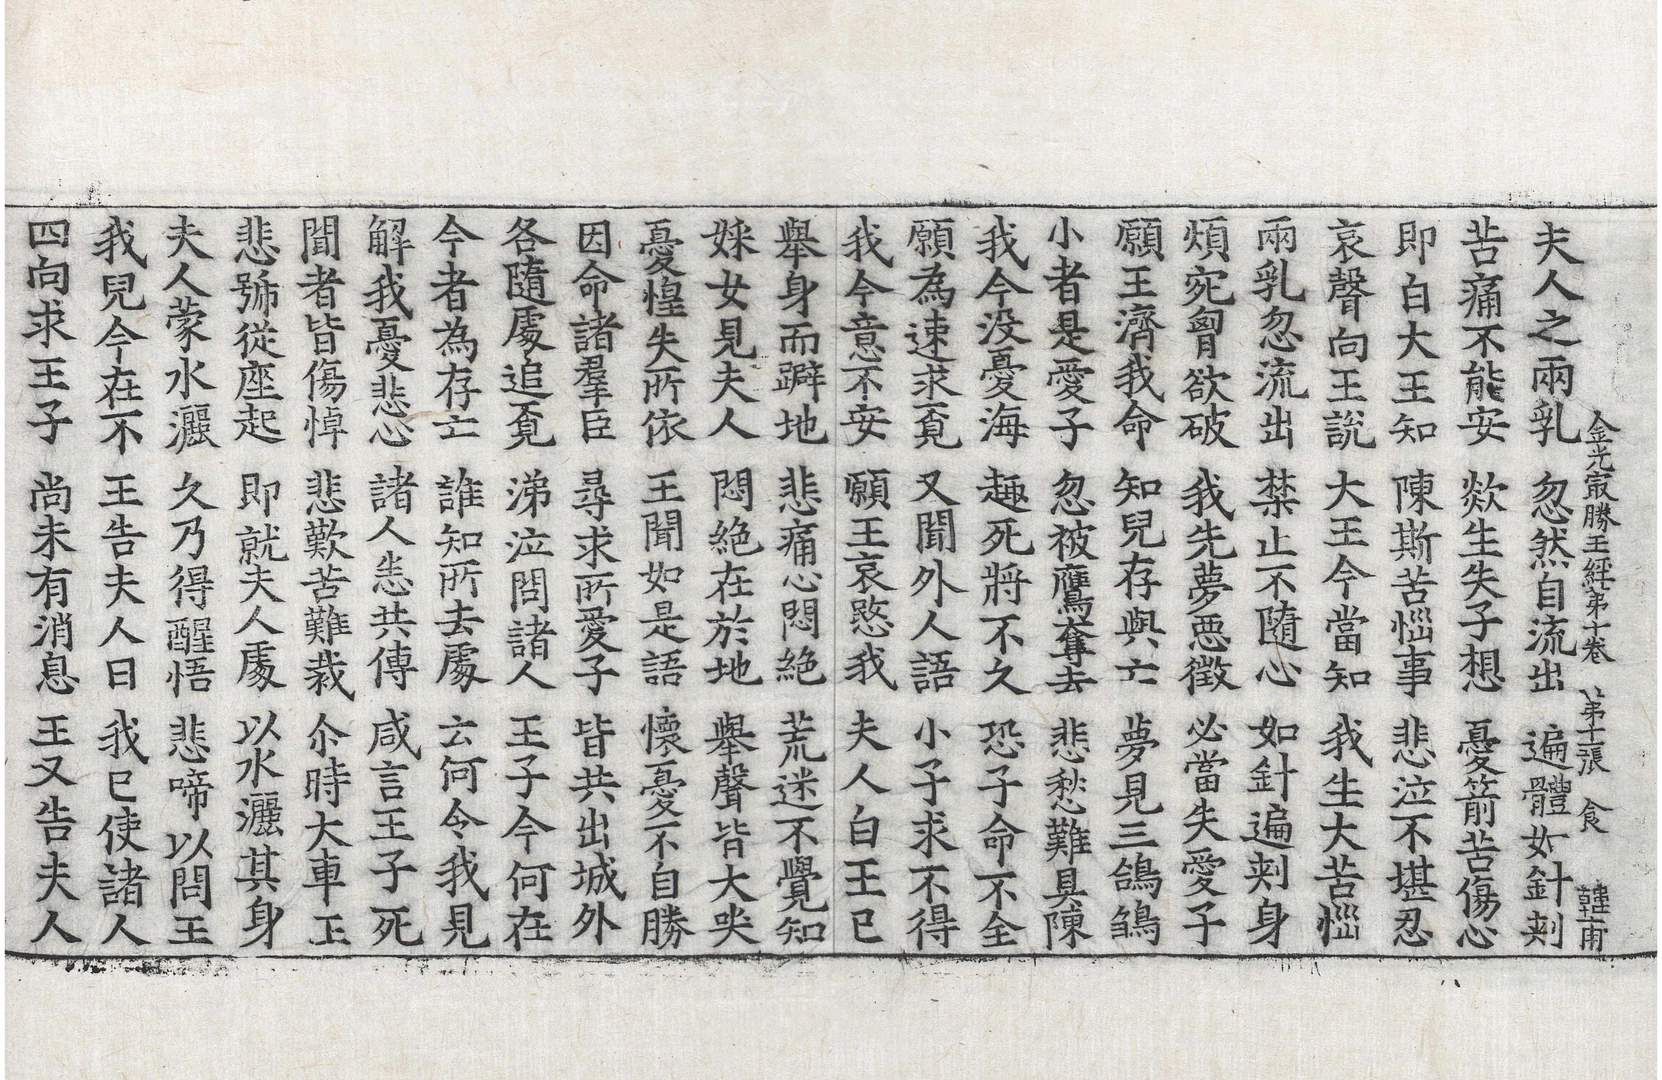 金光㝡勝王經苐十卷 苐十一張 食 韓甫
夫人之兩乳 忽然自流出 遍體如針刾
苦痛不能安 欻生失子想 憂箭苦傷心
即白大王知 陳斯苦惱事 悲泣不堪忍
哀聲向王說 大王今當知 我生大苦惱
兩乳忽流出 禁止不隨心 如針遍刾身
煩宛胷欲破 我先夢惡徵 必當失愛子
願王濟我命 知兒存與亡 夢見三鴿鶵
小者是愛子 忽被鷹奪去 悲愁難具陳
我今没憂海 趣死將不久 恐子命不全
願為速求覔 又聞外人語 小子求不得
我今意不安 願王哀愍我 夫人白王已
舉身而躃地 悲痛心悶絕 荒迷不覺知
婇女見夫人 悶絕在於地 舉聲皆大哭
憂惶失所依 王聞如是語 懷憂不自勝
因命諸羣臣 尋求所愛子 皆共出城外
各隨處追覔 涕泣問諸人 王子今何在
今者為存亡 誰知所去處 云何令我見
解我憂悲心 諸人悉共傳 咸言王子死
聞者皆傷悼 悲歎苦難裁 尒時大車王
悲號從座起 即就夫人處 以水灑其身
夫人蒙水灑 久乃得醒悟 悲啼以問王
我兒今在不 王告夫人曰 我已使諸人
四向求王子 尚未有消息 王又告夫人